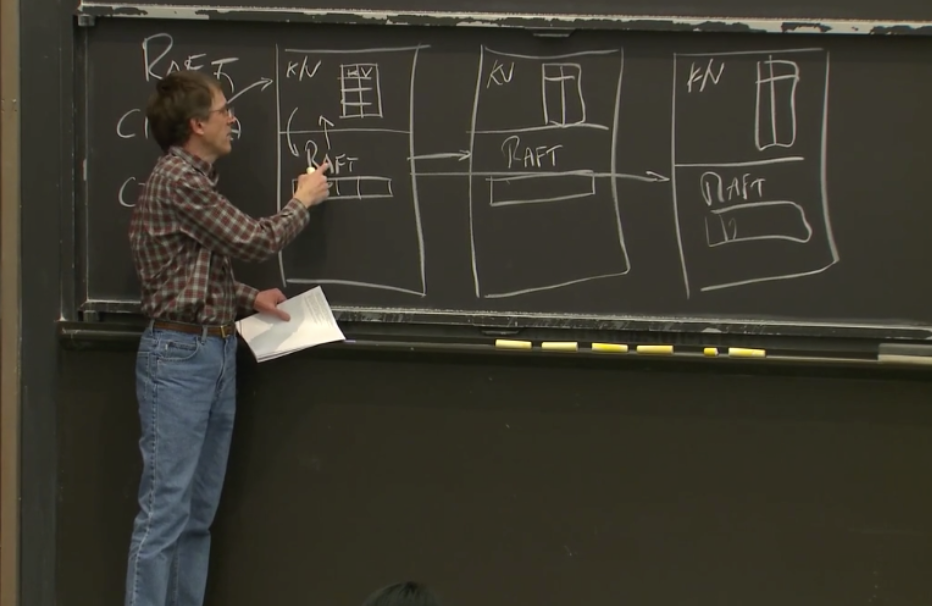 RAFT
KV
KV
RAFT
KV
RAFT
KV
RAFT